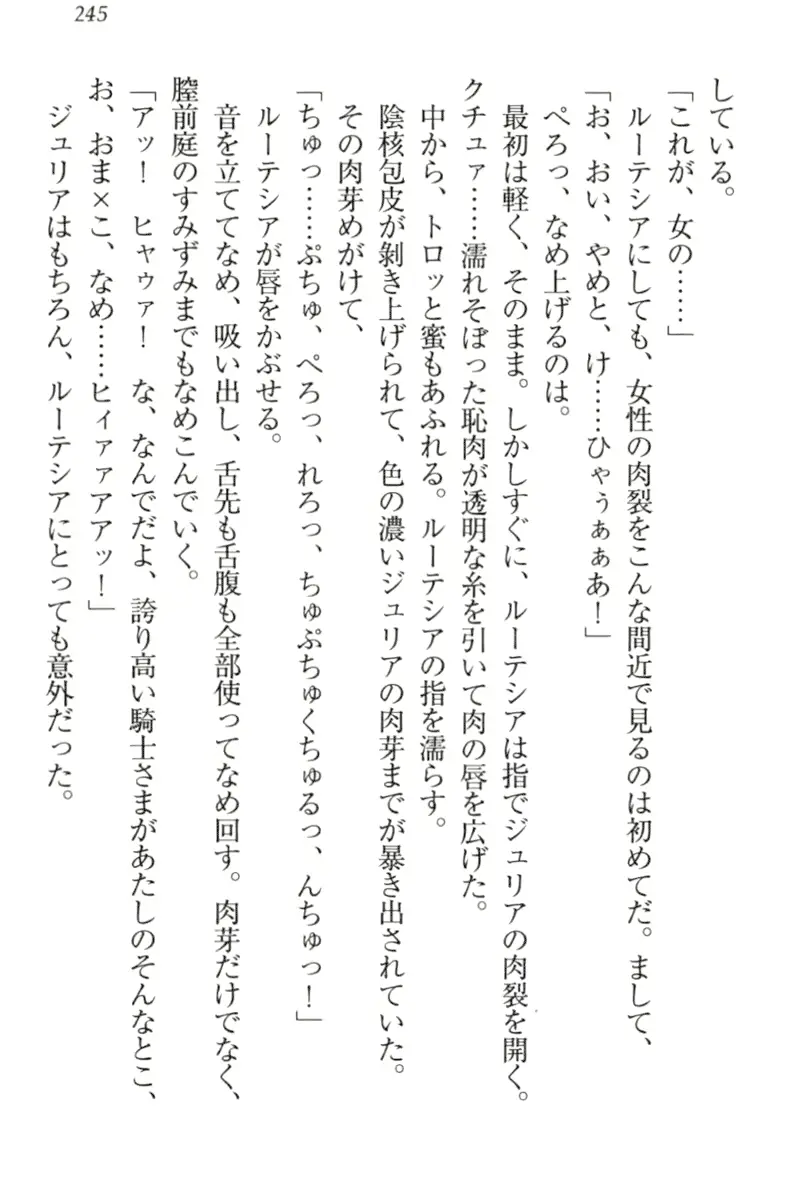 245
している。
「これが、女の……」
ルーテシアにしても、女性の肉裂をこんな間近で見るのは初めてだ。まして、
「お、おい、やめと、け……ひゃぅぁぁあ！」
ぺろっ、なめ上げるのは。
最初は軽く、そのまま。しかしすぐに、ルーテシアは指でジュリアの肉裂を開く。
クチュァ……濡れそぼった恥肉が透明な糸を引いて肉の唇を広げた。
中から、トロッと蜜もあふれる。ルーテシアの指を濡らす。
陰核包皮が剝き上げられて、色の濃いジュリアの肉芽までが暴き出されていた。
その肉芽めがけて、
「ちゅっ……ぷちゅ、ぺろっ、れろっ、ちゅぷちゅくちゅるっ、んちゅっ！」
ルーテシアが唇をかぶせる。
音を立ててなめ、吸い出し、舌先も舌腹も全部使ってなめ回す。肉芽だけでなく、
膣前庭のすみずみまでもなめこんでいく。
「アッ！　ヒャゥァ！　な、なんでだよ、誇り高い騎士さまがあたしのそんなとこ、
お、おま×こ、なめ……ヒィァァアアッ！」
ジュリアはもちろん、ルーテシアにとっても意外だった。